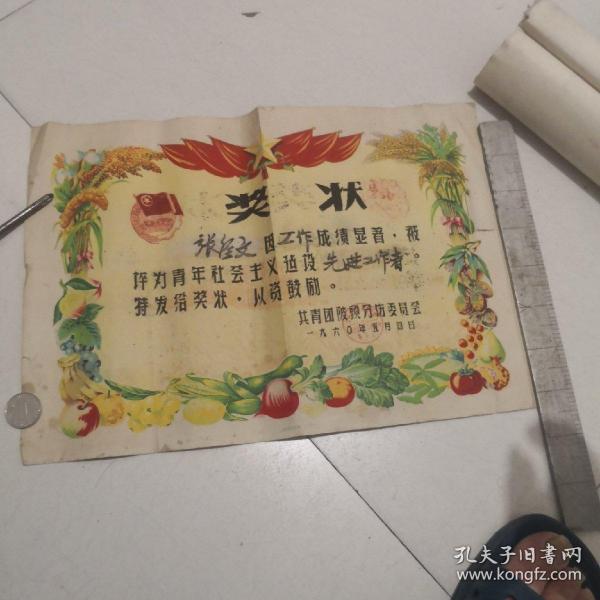 奖状
张经文因工作成绩显著，被
评为青年社会主义建设先进工作者。
特发给奖状，以资鼓励。
共青团陂预分坊委员会
一九六〇年五月四日
孔夫子旧书网
www.kongfz.com